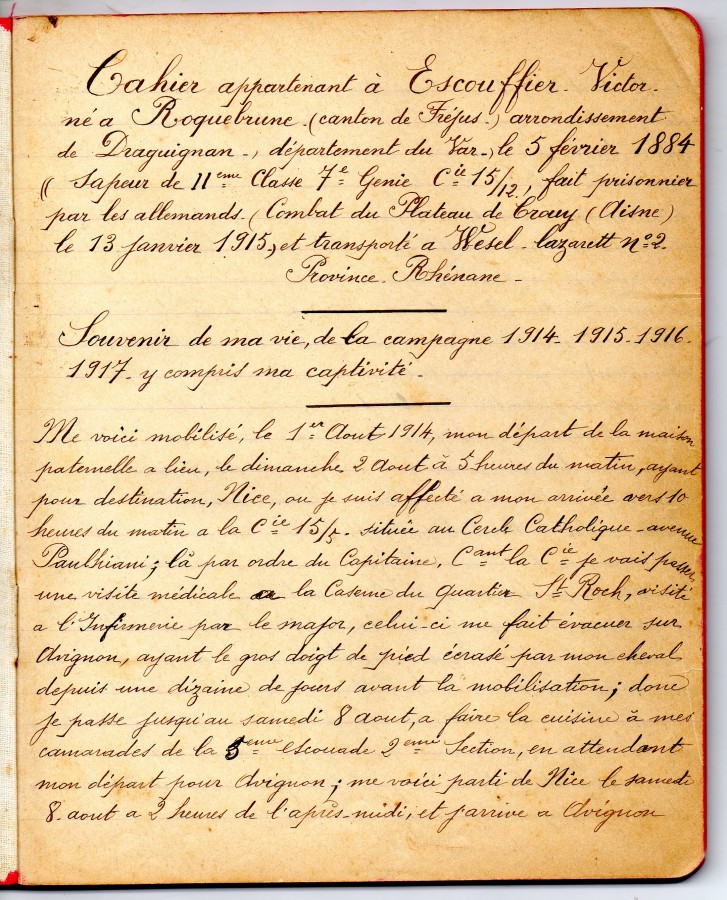 Cahier appartenant à Escouffier. Victor.
né a Roquebrune. (canton de Fréjus.) arrondissement
de Draguignan., département du Var., le 5 février 1884
(( Sapeur de IIeme Classe 7e Genie Cie 15/12, fait prisonnier
par les allemands. (Combat du Plateau de Crouy (Aisne)
le 13 Janvier 1915, et transporté a Wesel. lazarett no 2.
Province. Rhénane.
Souvenir de ma vie, de la campagne 1914. 1915. 1916.
1917. y compris ma captivité.
Me voici mobilisé, le 1er Aout 1914, mon départ de la maison
paternelle a lieu, le dimanche 2 aout à 5 heures du matin, ayant
pour destination, Nice, ou je suis affecté a mon arrivée vers 10
heures du matin a la Cie 15/5. située au Cercle Catholique. avenue
Paulhiani; là par ordre du Capitaine, Cant la Cie je vais passer
une visite médicale a la Caserne du Quartier St Roch, visité
a l'Infirmerie par le major, celui-ci me fait évacuer sur
Avignon, ayant le gros doigt de pied écrasé par mon cheval
depuis une dizaine de jours avant la mobilisation; donc
je passe jusqu'au samedi 8 aout, a faire la cuisine à mes
camarades de la 3eme escouade 2eme Section, en attendant
mon départ pour Avignon; me voici parti de Nice le samedi
8. aout a 2 heures de l'après-midi, et j'arrive a Avignon